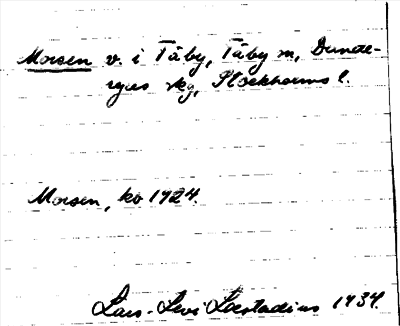 Mörsen v. i Täby, Täby sn, Dande-
ryds skg, Stockholms l.
Mörsen, ko 1924.
Lars-Levi Læstadius 1934.